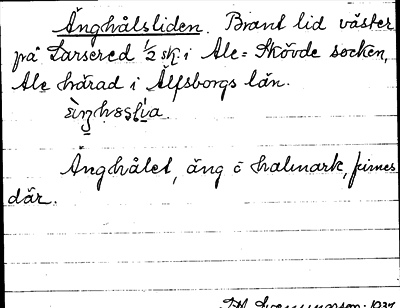 Änghålsliden. Brant lid väster
på Larsered ½ sk. i Ale-Skövde socken,
Ale härad i Älfsborgs län.
Änghålet, äng o halmark, finnes
där.